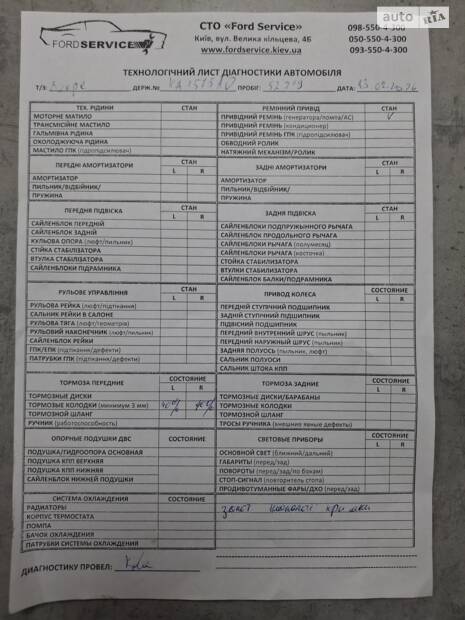 FORDSERVICE
СТО «Ford Service»
Київ, вул. Велика кільцева, 4б
www.fordservice.kiev.ua
098-550-4-300
050-550-4-300
093-550-4-300
auto RIA
ТЕХНОЛОГІЧНИЙ ЛИСТ ДІАГНОСТИКИ АВТОМОБІЛЯ
Т/З ДЕРЖ.№ ПРОБІГ: ДАТА:
ТЕХ. РІДИНИ СТАН
МОТОРНЕ МАТИЛО
ТРАНСМІЙНЕ МАСТИЛО
ГАЛЬМІВНА РІДИНА
ОХОЛОДЖУЮЧА РІДИНА
МАСТИЛО ГПК (гідропідсилювач)
РЕМІННИЙ ПРИВІД СТАН
ПРИВІДНИЙ РЕМІНЬ (генератора/помпа/АС) V
ПРИВІДНИЙ РЕМІНЬ (кондиционер)
ПРИВІДНИЙ РЕМІНЬ ГПК (гідропідсилювач)
ОБВОДНИЙ РОЛИК
НАТЯЖНИЙ МЕХАНІЗМ/РОЛИК
ПЕРЕДНІ АМОРТИЗАТОРИ СТАН
L R
АМОРТИЗАТОР
ПИЛЬНИК/ВІДБІЙНИК/
ПРУЖИНА
ЗАДНІ АМОРТИЗАТОРИ СТАН
L R
АМОРТИЗАТОР
ПИЛЬНИК/ВІДБІЙНИК/
ПРУЖИНА
ПЕРЕДНЯ ПІДВІСКА СТАН
L R
САЙЛЕНБЛОК ПЕРЕДНІЙ
САЙЛЕНБЛОК ЗАДНІЙ
КУЛЬОВА ОПОРА (люфт/пильник)
СТІЙКА СТАБІЛІЗАТОРА
ВТУЛКА СТАБІЛІЗАТОРА
САЙЛЕНБЛОКИ ПІДРАМНИКА
ЗАДНЯ ПІДВІСКА СТАН
L R
САЙЛЕНБЛОКИ ПОДПРУЖЫННОГО РЫЧАГА
САЙЛЕНБЛОК ПРОДОЛЬНОГО РЫЧАГА
САЙЛЕНБЛОКИ РЫЧАГА (полумесяц)
САЙЛЕНБЛОКИ РЫЧАГА (косточка)
СТОЙКА СТАБИЛИЗАТОРА
ВТУЛКИ СТАБИЛИЗАТОРА
САЙЛЕНБЛОК БАЛКИ/ПОДРАМНИКА
РУЛЬОВЕ УПРАВЛІННЯ СТАН
L R
РУЛЬОВА РЕЙКА (люфт/підтікання)
САЛЬНИК РЕЙКИ В САЛОНЕ
РУЛЬОВА ТЯГА (люфт/геометрія)
РУЛЬОВИЙ НАКОНЕЧНИК (люфт/пильник)
САЙЛЕНБЛОК РЕЙКИ
ГПК/ЕРК (підтікання/дефекти)
ПАТРУБКИ ГПК (підтікання/дефекти)
ПРИВОД КОЛЕСА СОСТОЯНИЕ
L R
ПЕРЕДНІЙ СТУПІЧНИЙ ПІДШИПНИК
ЗАДНІЙ СТУПІЧНИЙ ПІДШИПНИК
ПІДВІСНИЙ ПІДШИПНИК
ПЕРЕДНИЙ ВНУТРЕННИЙ ШРУС (пыльник)
ПЕРЕДНИЙ НАРУЖНЫЙ ШРУС (пыльник)
ЗАДНЯЯ ПОЛУОСЬ (пыльник, люфт)
САЛЬНИК ПОЛУОСИ
САЛЬНИК ШТОКА КПП
ТОРМОЗА ПЕРЕДНИЕ СОСТОЯНИЕ
L R
ТОРМОЗНЫЕ ДИСКИ
ТОРМОЗНЫЕ КОЛОДКИ (минимум 3 мм) 40% 40%
ТОРМОЗНОЙ ШЛАНГ
РУЧНИК (работоспособность)
ТОРМОЗА ЗАДНИЕ СОСТОЯНИЕ
L R
ТОРМОЗНЫЕ ДИСКИ/БАРАБАНЫ
ТОРМОЗНЫЕ КОЛОДКИ
ТОРМОЗНОЙ ШЛАНГ
ТРОСЫ РУЧНИКА (внешние явные дефекты)
ОПОРНЫЕ ПОДУШКИ ДВС СОСТОЯНИЕ
ПОДУШКА/ГИДРООПОРА ОСНОВНАЯ
ПОДУШКА КПП ВЕРХНЯЯ
ПОДУШКА КПП НИЖНЯЯ
САЙЛЕНБЛОК НИЖНЕЙ ПОДУШКИ
СВЕТОВЫЕ ПРИБОРЫ СОСТОЯНИЕ
ОСНОВНОЙ СВЕТ (ближний/дальний)
ГАБАРИТЫ (перед/зад)
ПОВОРОТЫ (перед/зад/по бокам)
СТОП-СИГНАЛ (повторитель стопа)
ПРОДИВОТУМАННЫЕ ФАРЫ/ДХО (перед/зад)
СИСТЕМА ОХЛАЖДЕНИЯ СОСТОЯНИЕ
РАДИАТОРЫ
КОРПУС ТЕРМОСТАТА
ПОМПА
БАЧОК ОХЛАЖДЕНИЯ
ПАТРУБКИ СИСТЕМЫ ОХЛАЖДЕНИЯ
ДИАГНОСТИКУ ПРОВЕЛ: